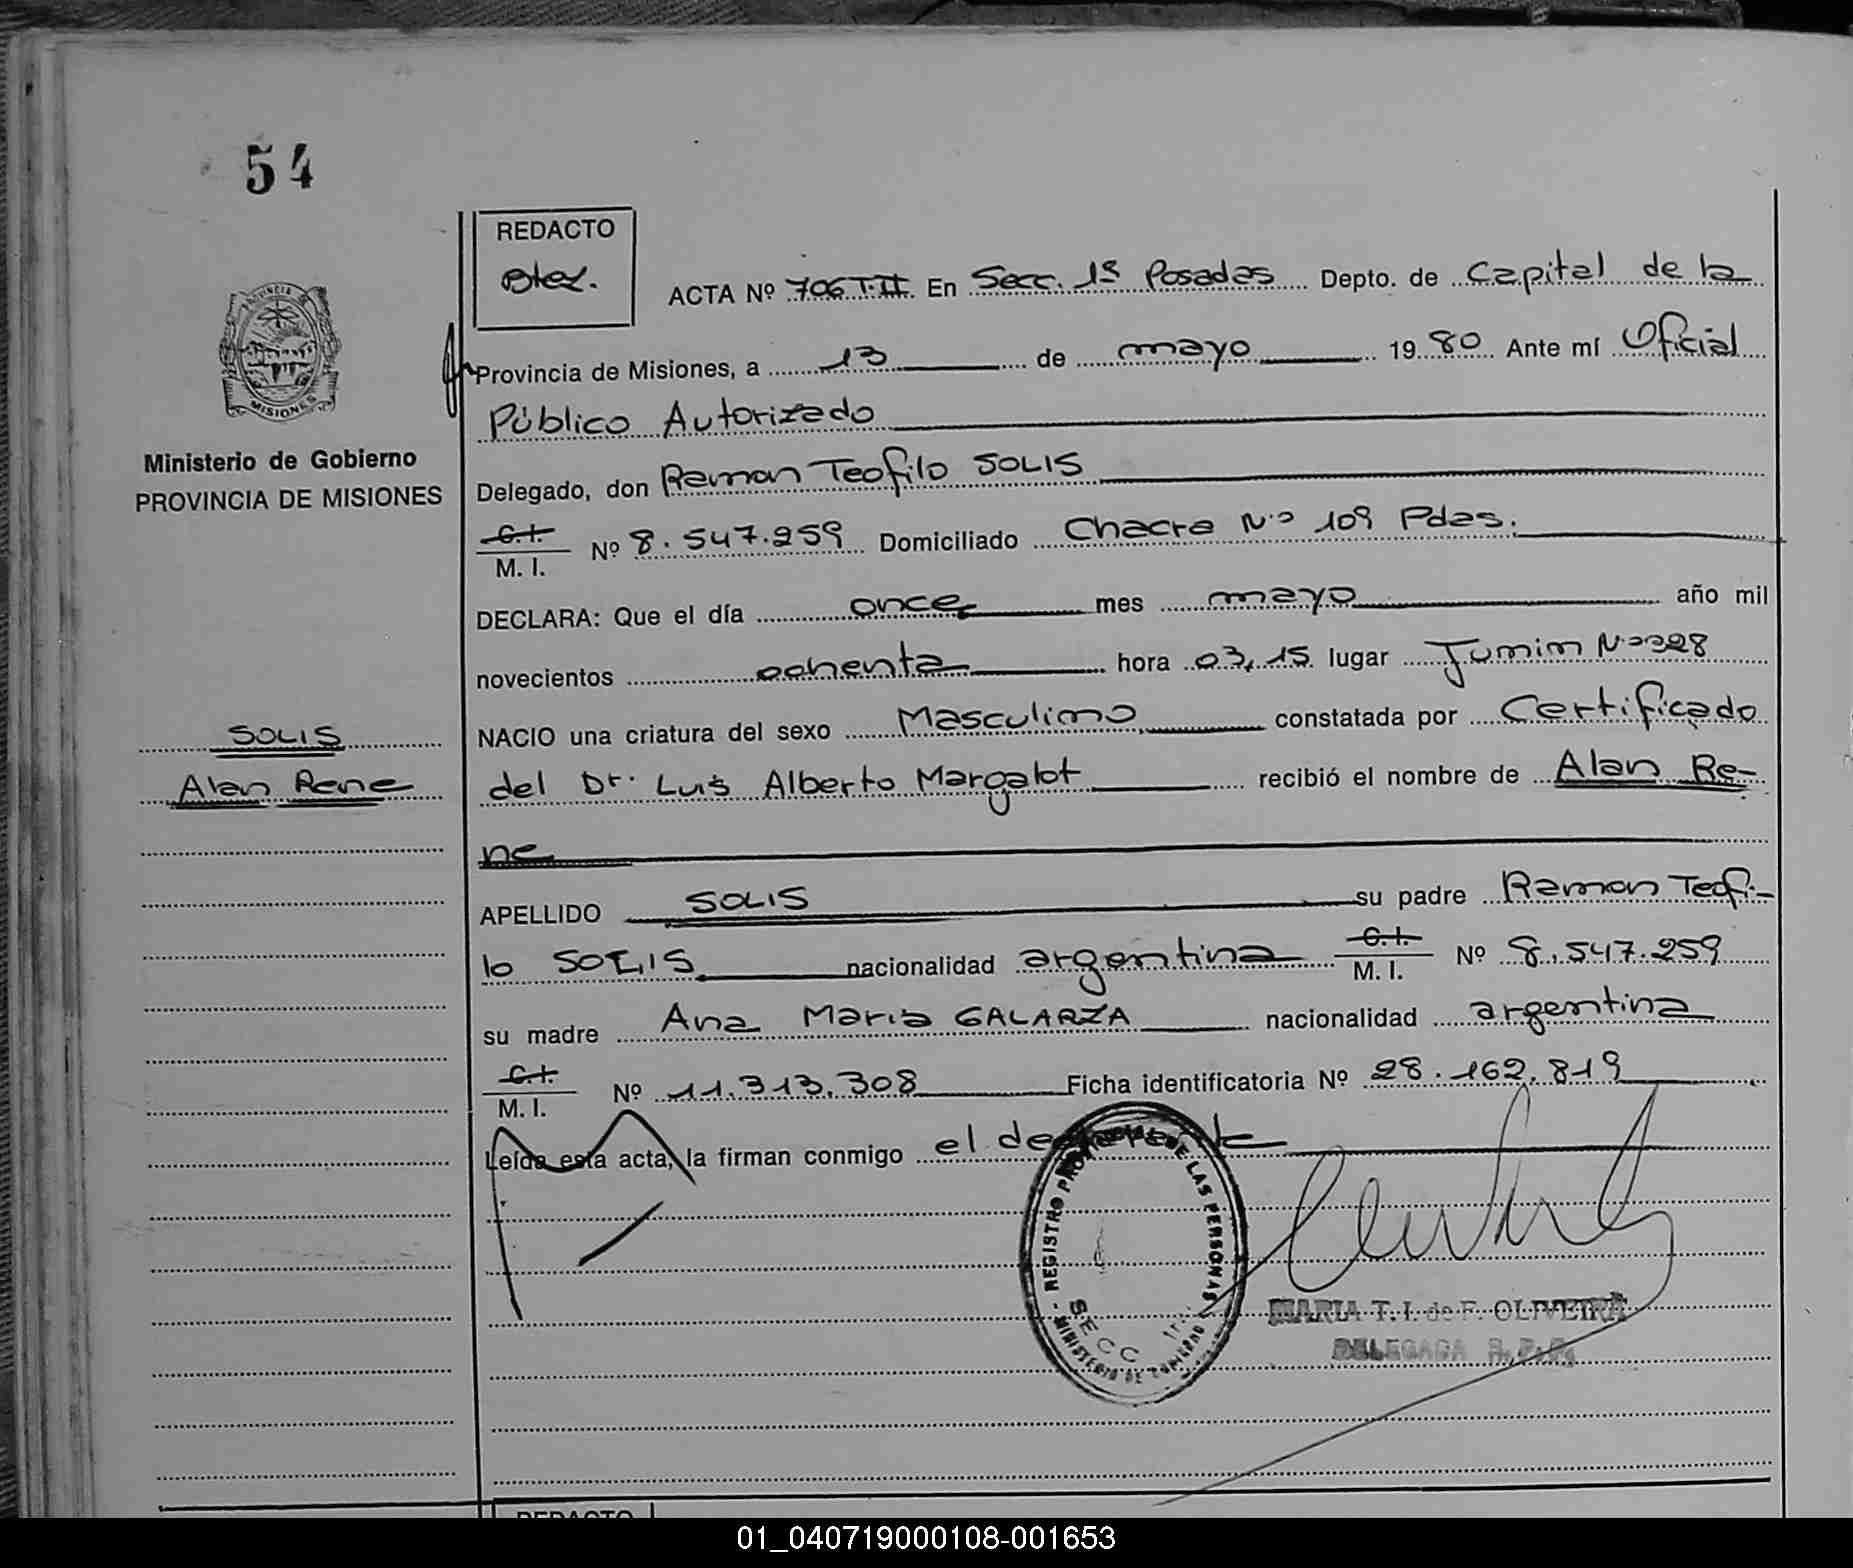 54
REDACTO
ACTA Nº 706 T.II En Secc. 1ª Posadas Depto. de Capital de la
Provincia de Misiones, a 13 de mayo 1980 Ante mí Oficial
Público Autorizado
PROVINCIA DE MISIONES
Ministerio de Gobierno
PROVINCIA DE MISIONES
Delegado, don Ramon Teofilo SOLIS
C.I. M. I. Nº 8.547.259 Domiciliado Chacra Nº 109 Pdas.
DECLARA: Que el día once mes mayo año mil
novecientos ochenta hora 03,15 lugar Junin Nº 328
SOLIS
Alan Rene
NACIO una criatura del sexo Masculino constatada por Certificado
del Dr. Luis Alberto Margalot recibió el nombre de Alan Re-
ne
APELLIDO SOLIS su padre Ramon Teofi-
lo SOLIS nacionalidad argentina C.I. M. I. Nº 8.547.259
su madre Ana Maria GALARZA nacionalidad argentina
C.I. M. I. Nº 11.313.308 Ficha identificatoria Nº 28.162.819
Leída esta acta, la firman conmigo el declarante
REGISTRO DE LAS PERSONAS
MINISTERIO DE
SECC
MARIA T. I. de F. OLIVEIRA
DELEGADA R. P. P.
REDACTO
01_040719000108-001653